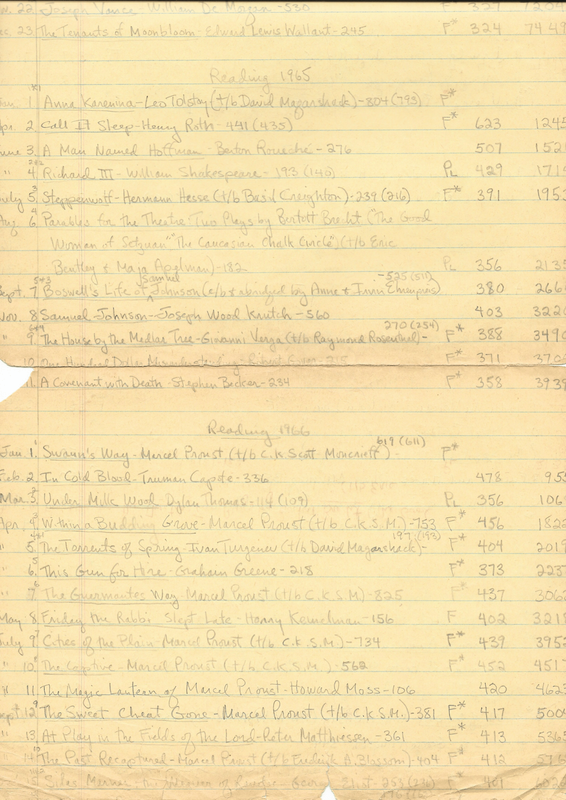 22 Joseph Vance William De Morgan - 530 F* 327
23 The Tenants of Moonbloom - Edward Lewis Wallant - 245 F* 324 7449
Reading 1965
1 Anna Karenina - Leo Tolstoy (t/b David Magarshack) - 804 (793) F*
2 Call It Sleep - Henry Roth - 441 (435) F* 623 124
June 3 A Man Named Hoffman - Berton Roueche - 276 507 152
" 4 Richard III - William Shakespeare - 193 (140) PL 429 171
July 5 Steppenwolf - Hermann Hesse (t/b Basil Creighton) - 239 (216) F* 391 195
Aug 6 Parables for the Theatre: Two Plays by Bertolt Brecht ("The Good
Woman of Setzuan" "The Caucasian Chalk Circle") (t/b Eric
Bentley & Maja Apelman) - 182 PL 356 213
Sept. 7 Boswell's Life of Samuel Johnson (e/b & abridged by Anne & Irvin Ehrenpreis) - 525 (511) 380 266
Nov. 8 Samuel Johnson - Joseph Wood Krutch - 560 403 322
" 9 The House by the Medlar Tree - Giovanni Verga (t/b Raymond Rosenthal) - 270 (254) F* 388 349
10 One Hundred Dollar Misunderstanding - Robert Gover - 215 F* 371 370
11 A Covenant with Death - Stephen Becker - 234 F* 358 393
Reading 1966
Jan. 1 Swann's Way - Marcel Proust (t/b C.K Scott Moncrieff) - 619 (611) F*
Feb. 2 In Cold Blood - Truman Capote - 336 478 955
Mar. 3 Under Milk Wood Dylan Thomas - 114 (109) PL 356 106
Apr. 4 Within a Budding Grove - Marcel Proust (t/b C.K.S.M.) - 753 F* 456 182
" 5 The Torrents of Spring - Ivan Turgenev (t/b David Magarshack) - 197 (193) F* 404 2019
" 6 This Gun for Hire - Graham Greene - 218 F* 373 223
" 7 The Guermantes Way - Marcel Proust (t/b C.K.S.M) - 825 F* 437 306
May 8 Friday the Rabbi Slept Late - Harry Kemelman - 156 F 402 321
July 9 Cities of the Plain - Marcel Proust (t/b C.K.S.M.) - 734 F* 439 395
" 10 The Captive - Marcel Proust (t/b C.K.S.M.) - 562 F* 452 451
11 The Magic Lantern of Marcel Proust - Howard Moss - 106 420 462
Sept. 12 The Sweet Cheat Gone - Marcel Proust (t/b C.K S.M.) - 381 F* 417 500
" 13 At Play in the Fields of the Lord - Peter Matthiessen - 361 F* 413 536
14 The Past Recaptured - Marcel Proust (t/b Frederick A. Blossom) - 404 F* 412
Silas Marner: the Weaver of Raveloe - George Eliot - 253 F* 401